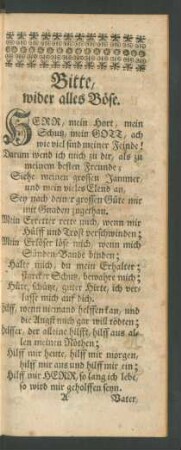 Bitte,
wider alles Böse.
HERR, mein Hort, mein
Schutz, mein GOTT, ach
wie viel sind meiner Feinde!
Darum wend ich mich zu dir, als zu
meinem besten Freunde;
Siehe meinen grossen Jammer
und mein vieles Elend an,
Sey nach deiner grossen Güte mir
mit Gnaden zugethan.
Mein Erretter rette mich, wenn mir
Hülff und Trost verschwinden;
Mein Erlöser löse mich, wenn mich
Sünden-Bande binden;
Halte mich, du mein Erhalter;
starcker Schutz, bewahre mich;
Hüte, schütze, guter Hirte, ich ver-
lasse mich auf dich.
hilff, wenn niemand helffen kan, und
die Angst mich gar will tödten;
hilffer, der alleine hilfft, hilff aus al-
len meinen Nöthen;
Hilff mir heute, hilff mir morgen,
hilff mir aus und hilff mir ein;
Hilff mir HERR, so lang ich lebe,
so wird mir geholffen seyn.
A Vater